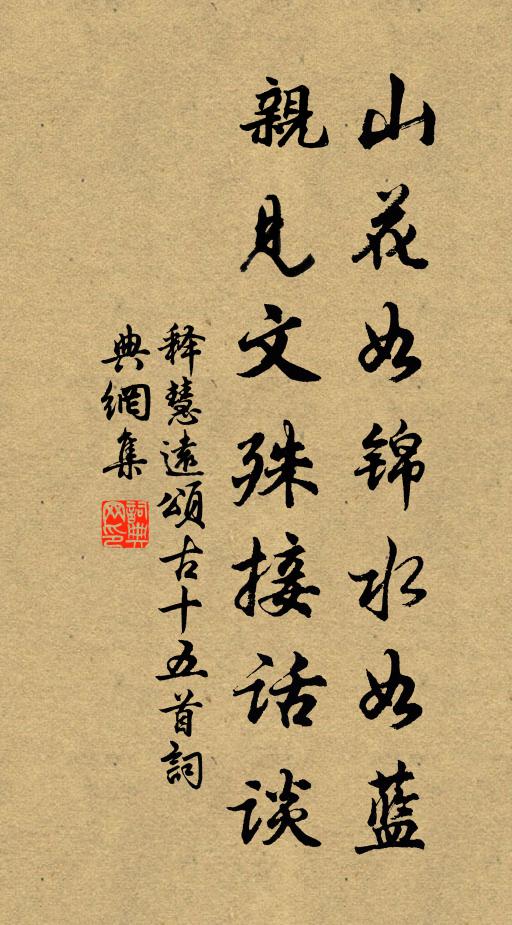 山花如锦水如藍
親見文殊接话谈
释慧遠頌古十五首詞
典網集
詞典網印